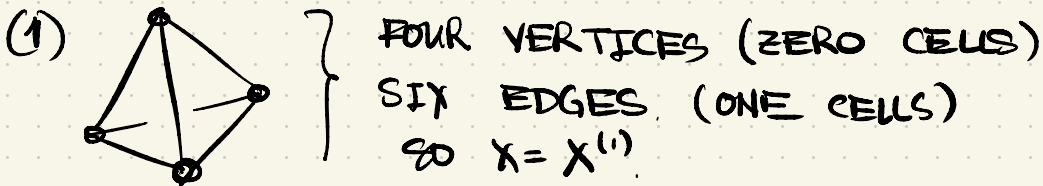 (1) FOUR VERTICES (ZERO CELLS)
SIX EDGES (ONE CELLS)
SO X = X⁽¹⁾.